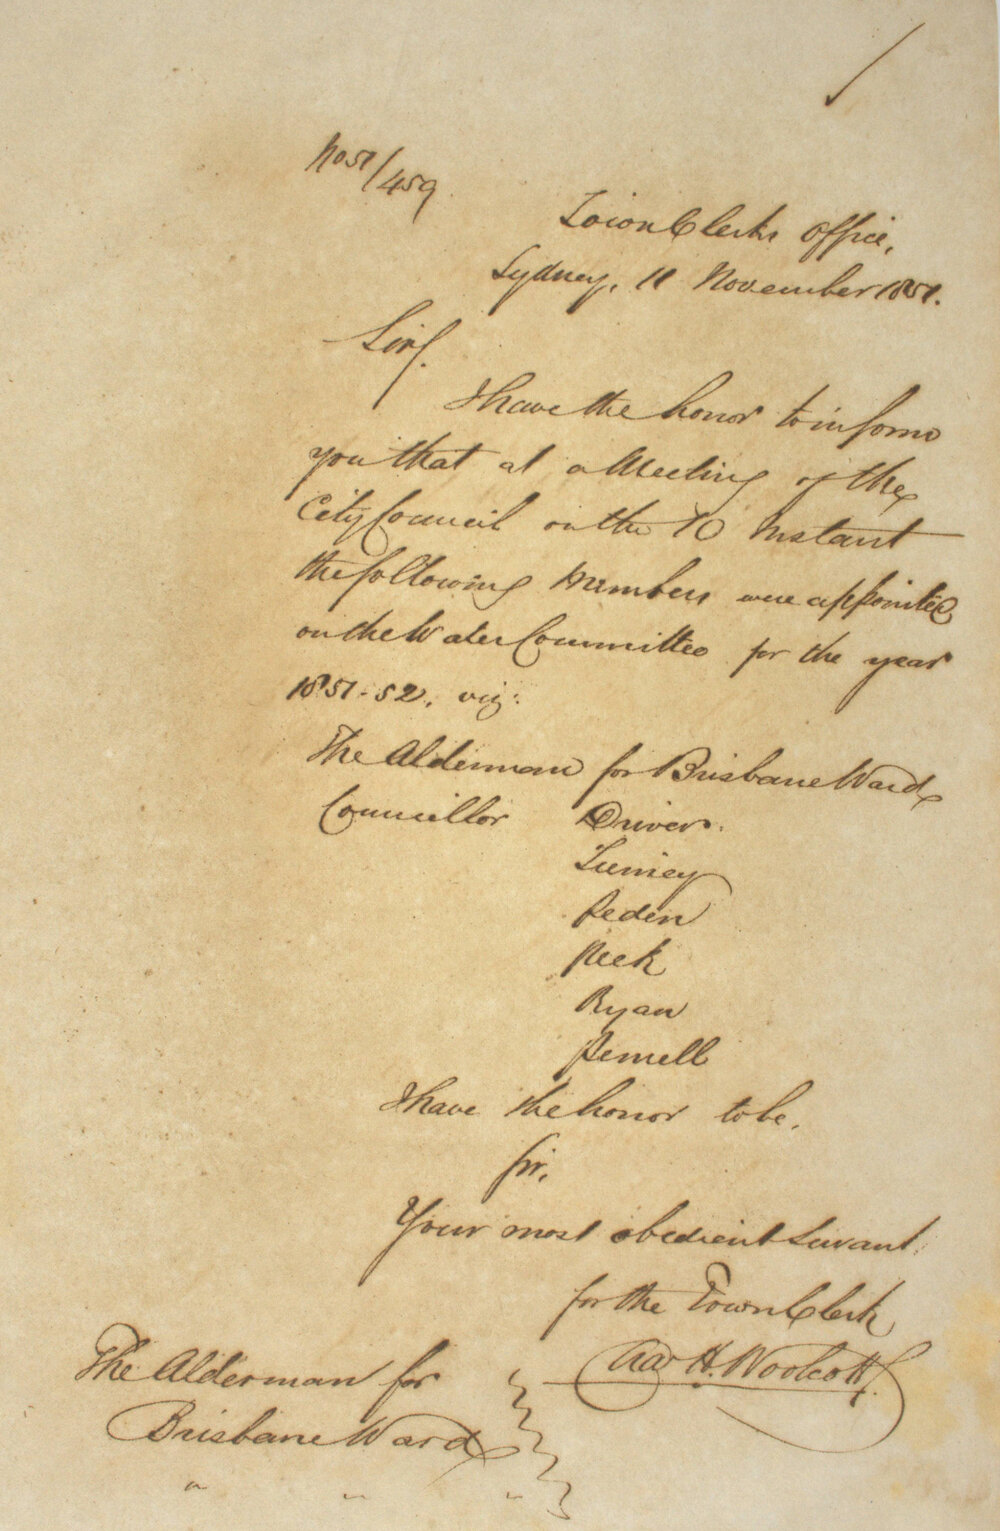 No 51/459
Town Clerks Office,
Sydney, 11 November 1851.
Sir,
I have the honor to inform
you that at a Meeting of the
City Council on the 10 Instant
the following Members were appointed
on the Water Committee for the year
1851-52, viz:
The Alderman for Brisbane Ward
Councillor Driver.
Iceton
Peden
Peek
Ryan
Pemell
I have the honor to be,
Sir,
Your most obedient Servant
for the Town Clerk
Chas H. Woolcott.
The Alderman for
Brisbane Ward
" " "